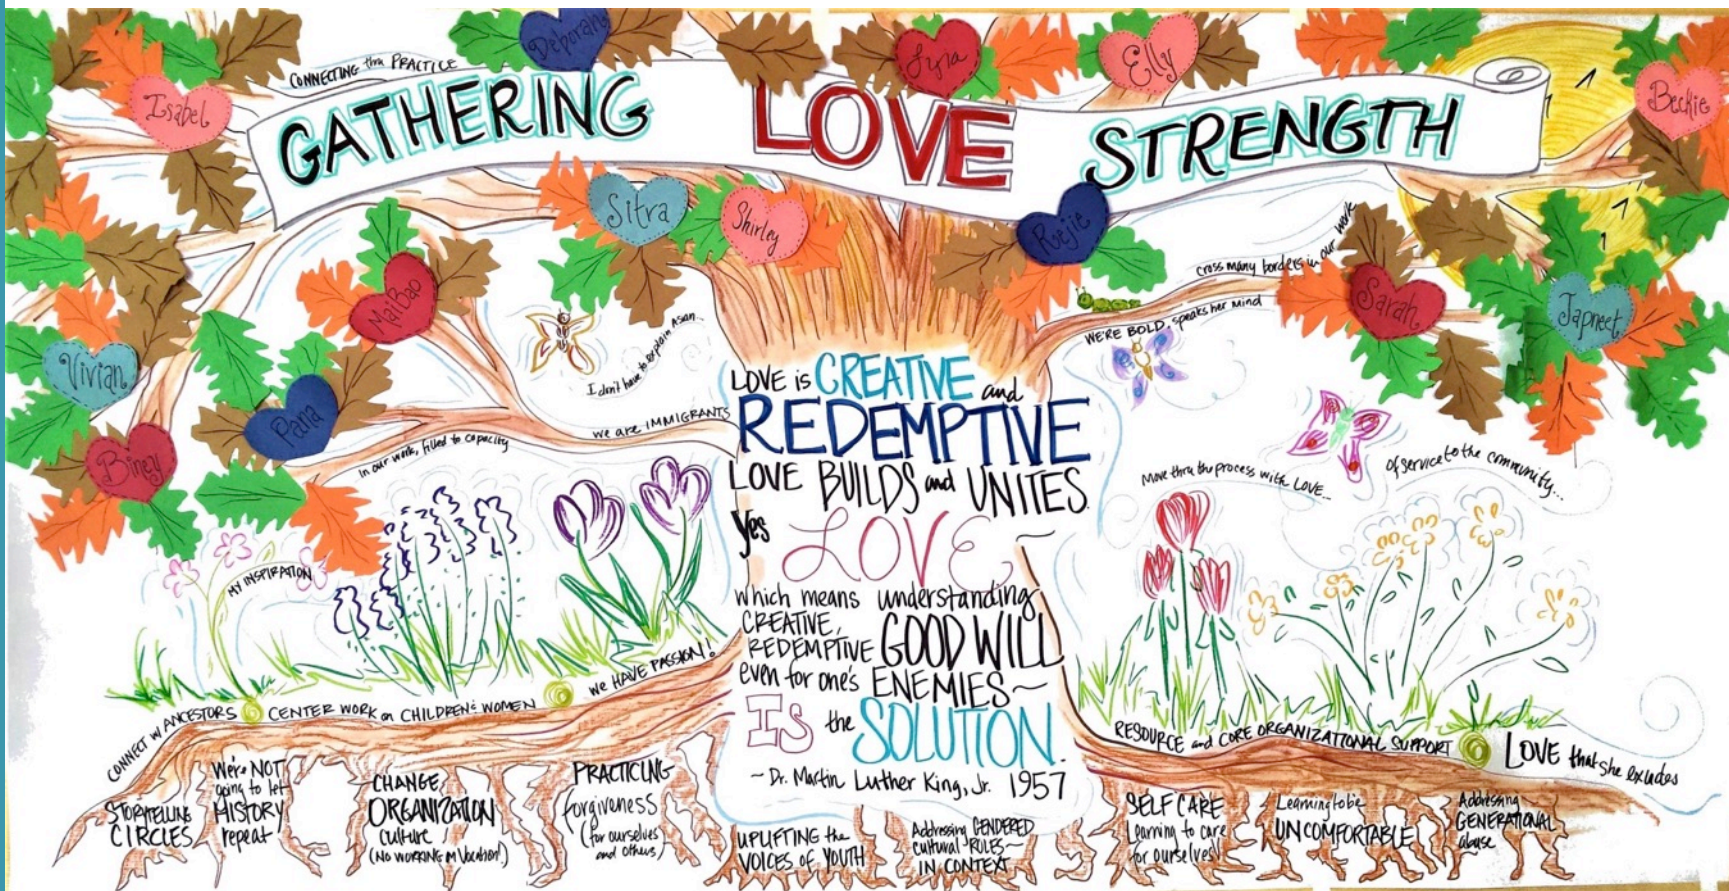 CONNECTING thru PRACTICE
Deborah
Lyra
Elly
Isabel
Beckie
GATHERING LOVE STRENGTH
Sitra
Shirley
Rejie
MaiBao
Sarah
Japneet
Vivian
Pana
Biney
cross many borders in our work
WE'RE BOLD, speaks her mind
I don't have to explain Asian...
we are IMMIGRANTS
in our work, filled to capacity
MY INSPIRATION
Move thru the process with LOVE...
of service to the community...
LOVE is CREATIVE and
REDEMPTIVE
LOVE BUILDS and UNITES.
yes
LOVE~
which means understanding
CREATIVE,
REDEMPTIVE GOOD WILL
even for one's ENEMIES~
IS the SOLUTION.
~ Dr. Martin Luther King, Jr. 1957
CONNECT W/ ANCESTORS
CENTER WORK on CHILDREN & WOMEN
we HAVE PASSION!
RESOURCE and CORE ORGANIZATIONAL SUPPORT
LOVE that she exudes
STORYTELLING
CIRCLES
We're NOT
going to let
HISTORY
repeat
CHANGE
ORGANIZATION
culture
(NO WORKING on Vacation!)
PRACTICING
forgiveness
(for ourselves
and others)
UPLIFTING the
VOICES of YOUTH
Addressing GENDERED
cultural RULES~
IN CONTEXT
SELF CARE
Learning to care
for ourselves!
Learning to be
UNCOMFORTABLE
Addressing
GENERATIONAL
abuse